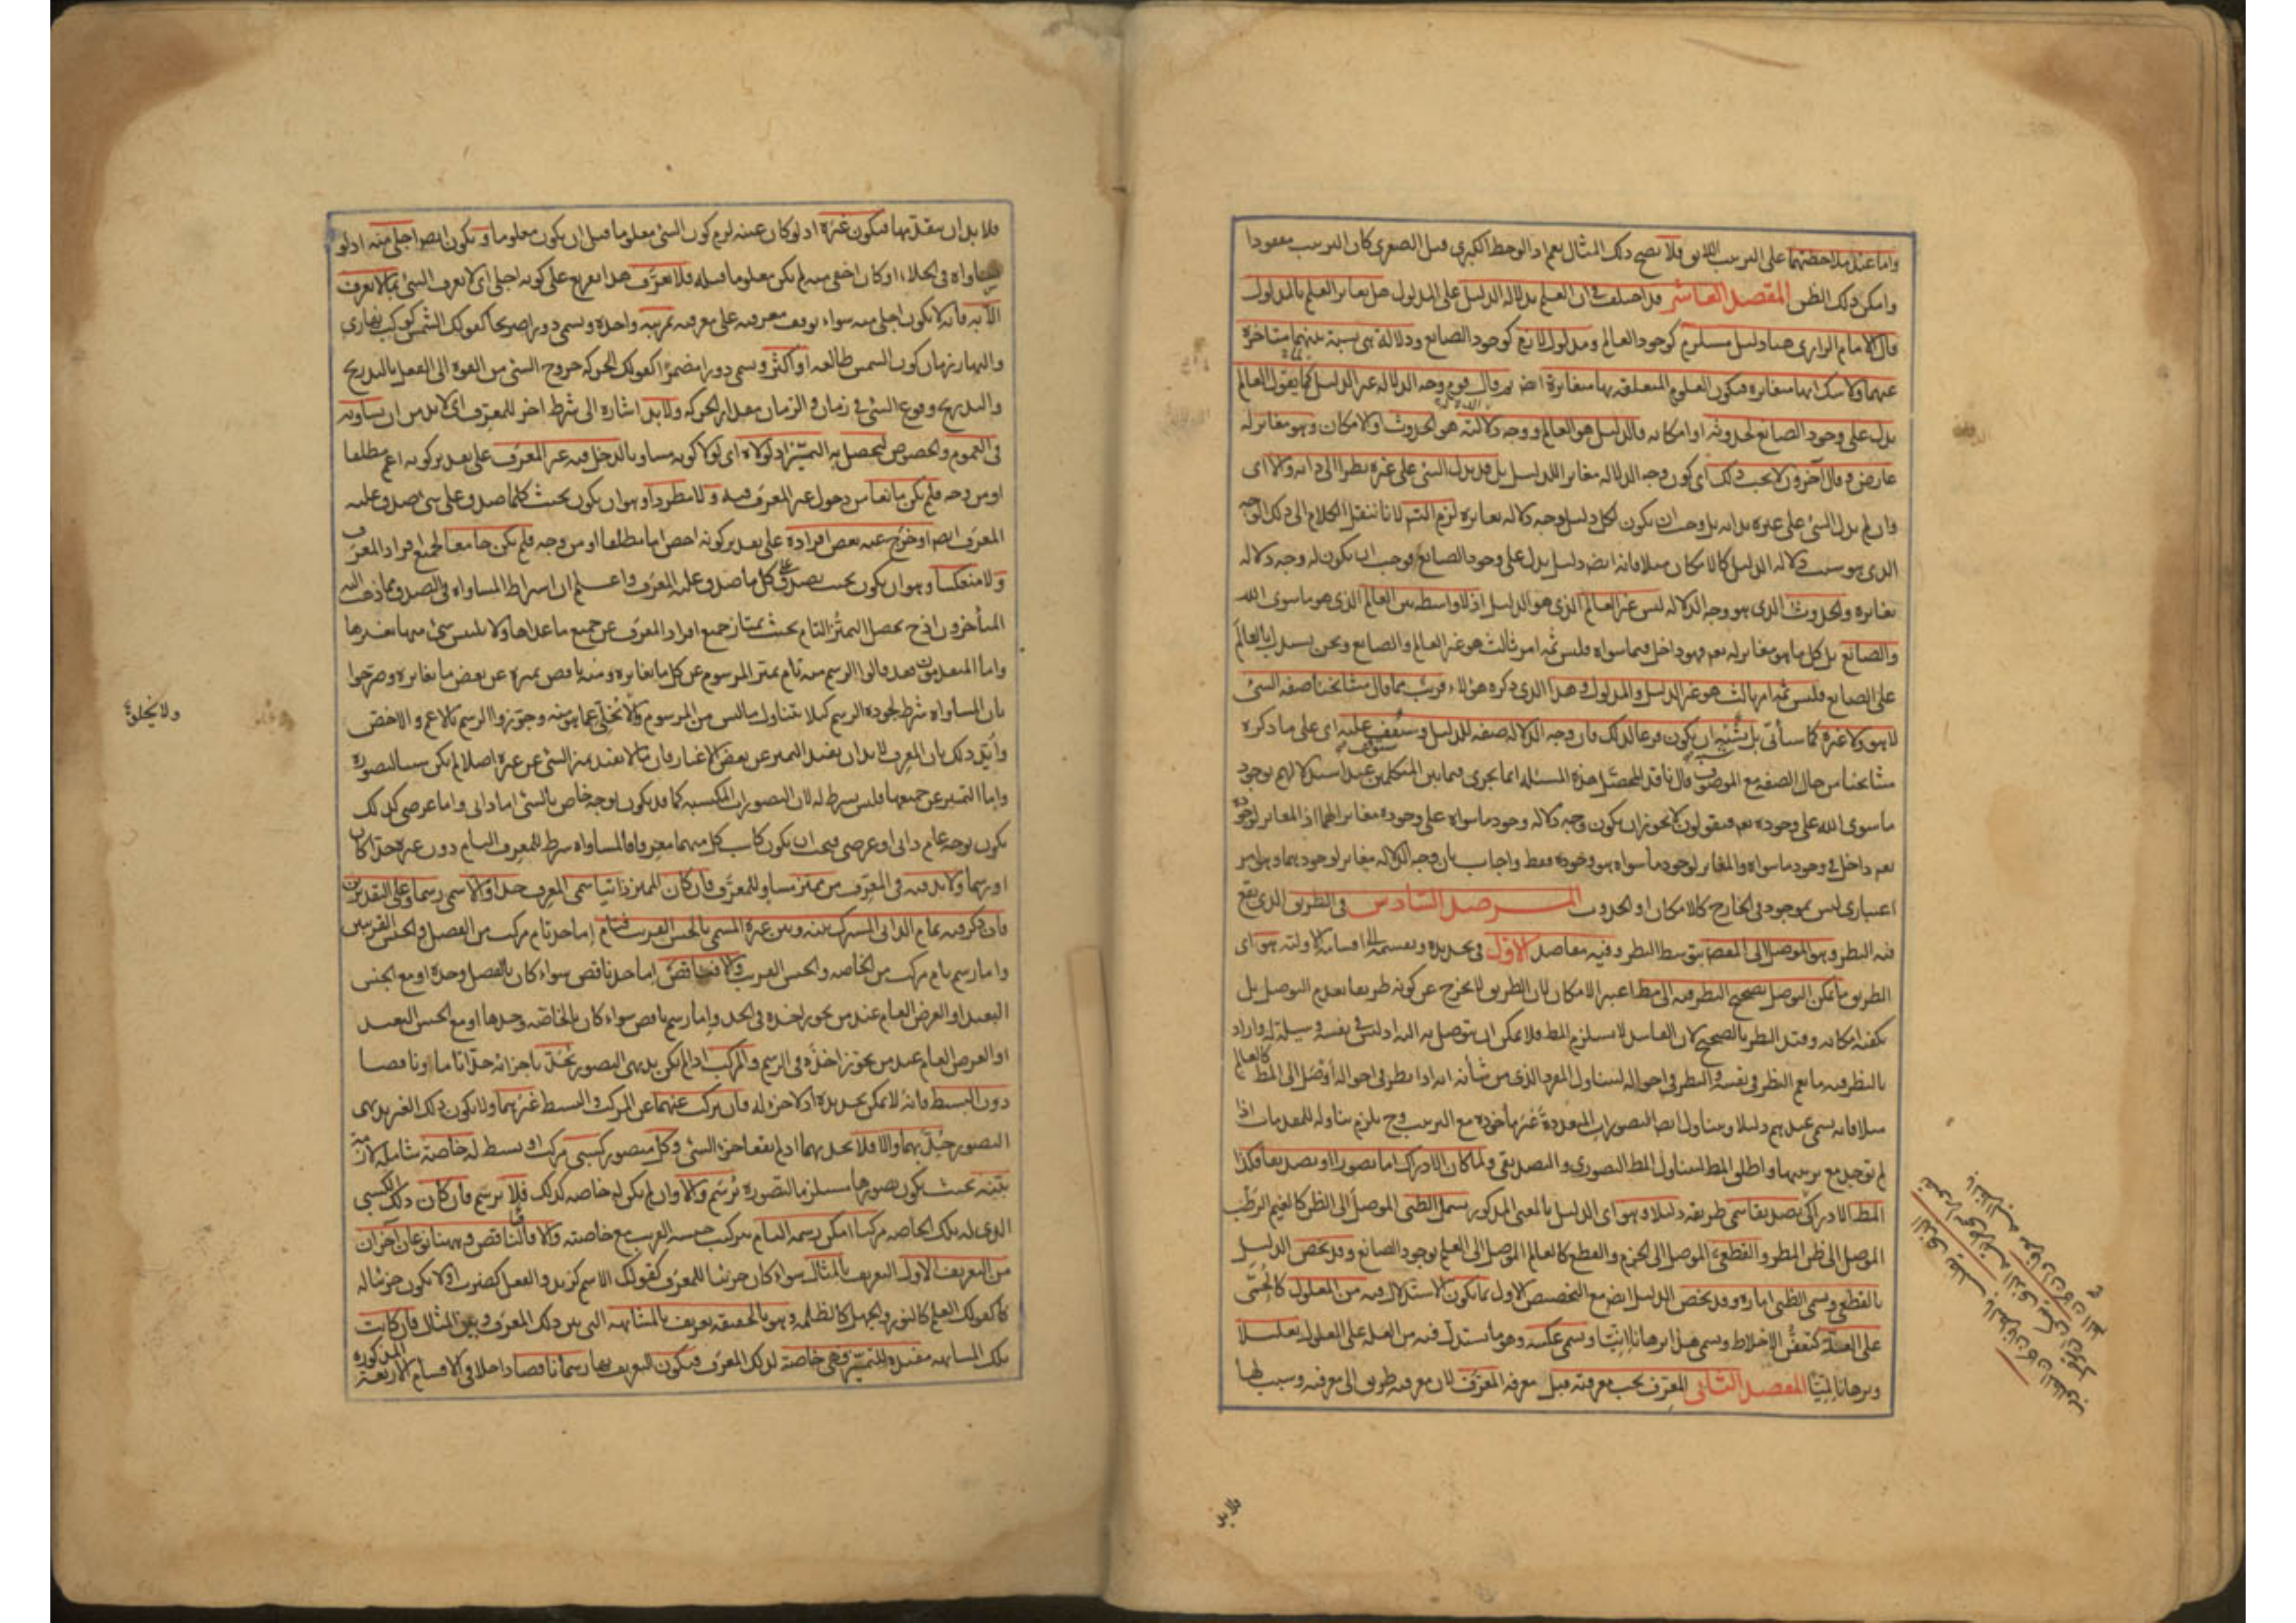 واما عند ملاحظتهما على الترتيب اللائق فلا يصح ذلك المثال نعم اذا لوحظ الكبرى قبل الصغرى كان الترتيب مفقودا
وامكن ذلك الظن المقصد العاشر قد اختلف في ان العلم بدلالة الدليل على المدلول هل يغاير العلم بالمدلول
قال الامام الرازي هنا دليل مستلزم كوجود العالم ومدلول لازم كوجود الصانع ودلالة هي نسبة بينهما متاخرة
عنهما ولا شك انها متغايرة فيكون العلوم المتعلقة بها متغايرة ايض ثم قال قوم وجه الدلالة غير الدليل كما يقول العالم
يدل على وجود الصانع لحدوثه او امكانه فالدليل هو العالم ووجه دلالته هو الحدوث او الامكان وهو مغاير له
عارض وقال آخرون لا يجب ذلك اى كون وجه الدلالة مغايرا للدليل بل قد يدل الشئ على غيره نظرا الى ذاته والا اى
وان لم يدل الشئ على غيره بذاته بل وجب ان يكون لكل دليل وجه دلالة يغايره لزم التس لانا ننقل الكلام الى ذلك الوجه
الذى هو سبب دلالة الدليل كالامكان مثلا فانه ايض دليل يدل على وجود الصانع فوجب ان يكون له وجه دلالة
يغايره والحدوث الذى هو وجه الدلالة ليس غير العالم الذى هو الدليل اذ لا واسطه بين العالم الذى هو ما سوى الله
والصانع بل كل ما هو مغاير له تعم فهو داخل فيما سواه فليس ثمه امر ثالث هو غير العالم والصانع ونحن نستدل بالعالم
على الصانع فليس ثمه امر ثالث هو غير الدليل والمدلول وهذا الذى ذكره هؤلاء قريب مما قال مشائخنا صفة الشئ
لا هو ولا غيره كما سيأتى بل يشبه ان يكون فرعا لذلك فان وجه الدلالة صفة للدليل وستقف عليه اى على ما ذكره
مشايخنا من حال الصفه مع الموصوف قال ناقد المحصل هذه المسئلة انما يجرى فيما بين المتكلمين عند استدلالهم بوجود
ما سوى الله على وجوده تعم فيقولون لا يجوز ان يكون وجه دلالة وجود ما سواه على وجوده مغايرا لهما اذ المغاير لوجوده
تعم داخل في وجود ما سواه والمغاير لوجود ما سواه هو وجوده فقط واجاب بان وجه الدلالة مغاير لوجودهما وهو امر
اعتبارى ليس بموجود في الخارج كالامكان او الحدوث المرصد السادس فى الطريق الذى يقع
فيه النظر وهو الموصل الى المقصد بتوسط النظر وفيه مقاصد الاول في تحديده وتقسيمه الى اقسامه الاولية هو اى
الطريق ما يمكن التوصل بصحيح النظر فيه الى مط اعتبر الامكان لان الطريق لا يخرج عن كونه طريقا بعدم التوصل بل
يكفيه امكانه وقيد النظر بالصحيح لان الفاسد لا يستلزم المط فلا يمكن ان يتوصل به اليه اذ ليس في نفسه وسيلة له واراد
بالنظر فيه ما يعم النظر في نفسه والنظر في احواله ليتناول المفرد الذى من شانه انه اذا نظر في احواله اوصل الى المط كالعالم
مثلا فانه يسمى عندهم دليلا ويتناول ايض التصورات المتعددة غير ماخوذة مع الترتيب وح يلزم تناوله للمقدمات اذا
لم توجد مع ترتيبها واطلق المط ليتناول المط التصورى والتصديقى ولما كان الادراك اما تصورا او تصديقا فكذا
المط الادراكى تصديقا سمى طريقه دليلا وهو اى الدليل بالمعنى المذكور يشمل الظنى الموصل الى الظن كالغيم الرطب
الموصل الى ظن المطر والقطعى الموصل الى الجزم والقطع كالعالم الموصل الى العلم بوجود الصانع وقد يخص الدليل
بالقطعى ويسمى الظنى امارة وقد يخص الدليل ايض مع التخصيص الاول بما يكون الاستدلال فيه من المعلول كالحمى
على العلة كتعفن الاخلاط ويسمى هذا برهانا انيا ويسمى عكسه وهو ما يستدل فيه من العلة على المعلول تعليلا
وبرهانا لميا المقصد الثانى المعرف يجب معرفته قبل معرفة المعرف لان معرفته طريق الى معرفته وسبب لها
فلا بد
فلا بد ان يتقدمها فيكون غيره اذ لو كان عينه لزم كون الشئ معلوما قبل ان يكون معلوما ويكون ايض اجلى منه اذ لو
ساواه فى الجلاء او كان اخفى منه لم يكن معلوما قبله فلا يعرف هذا تفريع على كونه اجلى اى لا يعرف الشئ بما لا يعرف
الا به فانه لا يكون اجلى منه سواء توقف معرفته على معرفته بمرتبة واحدة ويسمى دورا صريحا كقولك الشمس كوكب نهارى
والنهار زمان كون الشمس طالعة او اكثر ويسمى دورا مضمرا كقولك الحركة خروج الشئ من القوة الى الفعل بالتدريج
والتدريج وقوع الشئ في زمان والزمان مقدار الحركة ولا بد اشارة الى شرط اخر للمعرف اى لا بد من ان يساويه
فى العموم والخصوص ليحصل به التميز اذ لولاه اى لولا كونه مساويا لدخل فيه غير المعرف على تقدير كونه اعم مطلقا
او من وجه فلم يكن مانعا من دخول غير المعرف فيه ولا مطردا وهو ان يكون بحيث كلما صدق على شئ صدق عليه
المعرف ايض او خرج عنه بعض افراده على تقدير كونه اخص اما مطلقا او من وجه فلم يكن جامعا لجميع افراد المعرف
ولا منعكسا وهو ان يكون بحيث يصدق على كل ما صدق عليه المعرف واعلم ان اشتراط المساواه فى الصدق مما ذهب اليه
المتأخرون اذ ح يحصل التميز التام بحيث يمتاز جميع افراد المعرف عن جميع ما عداها ولا يلتبس شئ منها بغيرها
واما المتقدمون فقد قالوا الرسم منه تام يميز المرسوم عن كل ما يغايره ومنه ناقص يميزه عن بعض ما يغايره وصرحوا
بان المساواه شرط لجودة الرسم كيلا يتناول ما ليس من المرسوم ولا يخلى عما هو منه وجوزوا الرسم بالاعم والاخص
ولا يخلى
وأيد ذلك بان المعرف لا بد ان يفيد التميز عن بعض الاغيار فان ما لا يفيد تميز الشئ عن غيره اصلا لم يكن سببا لتصوره
واما التميز عن جميعها فليس بشرط له لان التصورات المكتسبه كما قد يكون بوجه خاص بالشئ اما ذاتى واما عرضى كذلك
يكون بوجه عام ذاتى او عرضى فيجب ان يكون كاسب كل منهما معرفا فالمساواه شرط للمعرف التام دون غيره حدا كان
او رسما ولا بد فيه فى المعرف من مميز مساو للمعرف فان كان المميز ذاتيا سمى المعرف حدا والا سمى رسما وعلى التقديرين
فان ذكر فيه تمام الذاتى المشترك بينه وبين غيره المسمى بالجنس القريب فتام اما حد تام مركب من الفصل والجنس القريبين
واما رسم تام مركب من الخاصه والجنس القريب والا فناقص اما حد ناقص سواء كان بالفصل وحده او مع الجنس
البعيد او العرض العام عند من يجوز اخذه في الحد واما رسم ناقص سواء كان بالخاصة وحدها او مع الجنس البعيد
او العرض العام عند من يجوز اخذه فى الرسم والمركب اذا لم يكن بديهى التصور يحد باجزائه حدا تاما او ناقصا
دون البسيط فانه لا يمكن تحديده اذ لا جزء له فان تركب عنهما عن المركب والبسيط غيرهما ولا يكون ذلك الغير بديهى
التصور حد بهما والا فلا يحد بهما اذ لم يقعا جزء الشئ وكل متصور كسبى مركب او بسيط له خاصة شاملة لازمة
بينة بحيث يكون تصورها مستلزما لتصوره يرسم والا وان لم يكن له خاصه كذلك فلا يرسم فان كان ذلك الكسبى
الذى له تلك الخاصه مركبا امكن رسمه التام بتركيب جنسه القريب مع خاصته والا فالناقص وههنا نوعان آخران
من التعريف الاول التعريف بالمثال سواء كان جزئيا للمعرف كقولك الاسم كزيد والفعل كضرب او لا يكون جزئيا له
كقولك العلم كالنور والجهل كالظلمه وهو بالحقيقه تعريف بالمشابهه التى بين ذلك المعرف وبين المثال فان كانت
تلك المشابهه مفيدة للتميز فهى خاصة لذلك المعرف فيكون التعريف بها رسما ناقصا داخلا في الاقسام الاربعة المذكورة